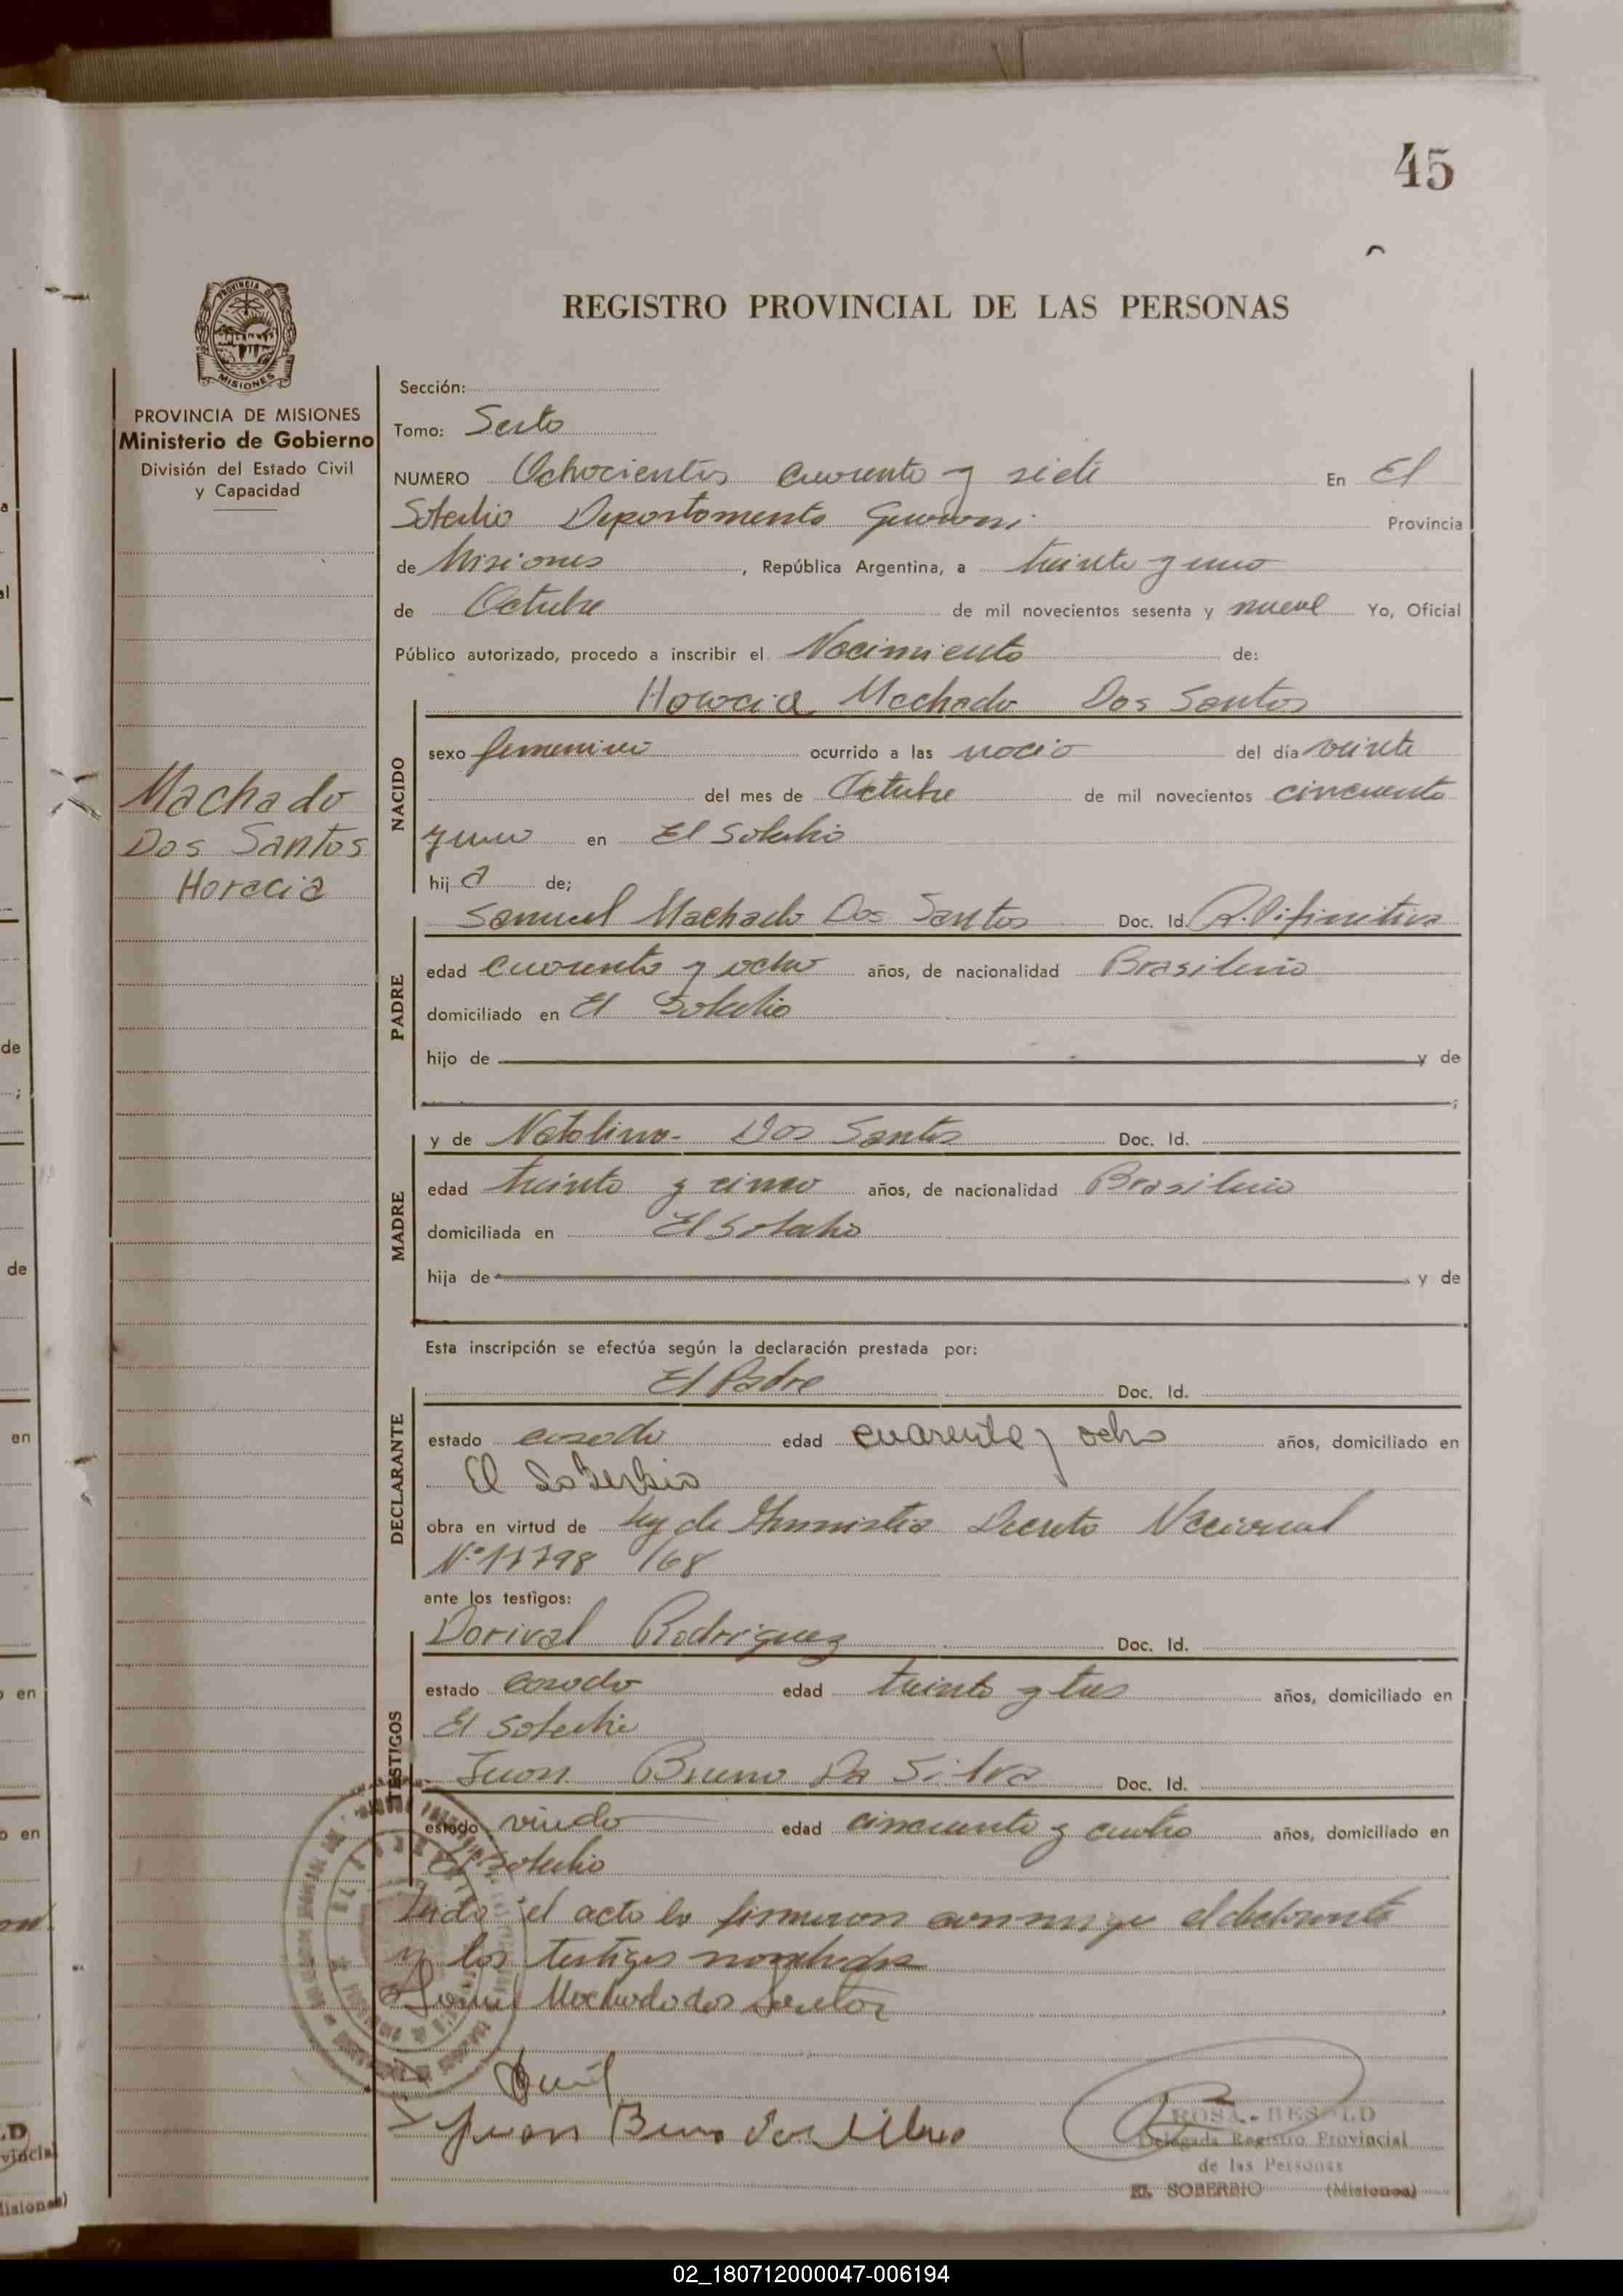 45
REGISTRO PROVINCIAL DE LAS PERSONAS
PROVINCIA DE MISIONES
Ministerio de Gobierno
División del Estado Civil
y Capacidad
MISIONES
Machado
Dos Santos
Horacia
Sección:
Tomo: Sexto
NUMERO Ochocientos cuarenta y siete En El
Soberbio Departamento Guarani Provincia
de Misiones, República Argentina, a treinta y uno
de Octubre de mil novecientos sesenta y nueve Yo, Oficial
Público autorizado, procedo a inscribir el Nacimiento de:
Horacia Machado Dos Santos
NACIDO
sexo femenino ocurrido a las del día veinte
del mes de Octubre de mil novecientos cincuenta
y uno en El Soberbio
hija de;
PADRE
Samuel Machado Dos Santos Doc. Id.
edad cuarenta y ocho años, de nacionalidad Brasileña
domiciliado en El Soberbio
hijo de y de
;
MADRE
y de Natalina Dos Santos Doc. Id.
edad treinta y cinco años, de nacionalidad Brasileña
domiciliada en El Soberbio
hija de y de
Esta inscripción se efectúa según la declaración prestada por:
DECLARANTE
El Padre Doc. Id.
estado casado edad cuarenta y ocho años, domiciliado en
El Soberbio
obra en virtud de Ley de Amnistia Decreto Nacional
Nº 17798/68
ante los testigos:
TESTIGOS
Dorival Rodriguez Doc. Id.
estado casado edad treinta y tres años, domiciliado en
El Soberbio
Juan Bruno Da Silva Doc. Id.
estado viudo edad cincuenta y cuatro años, domiciliado en
El Soberbio
el acto lo firmaron conmigo el declarante
y los testigos nombrados
Machado dos Santos
Juan Bruno
ROSA
Delegada Registro Provincial
de las Personas
EL SOBERBIO (Misiones)
02_180712000047-006194